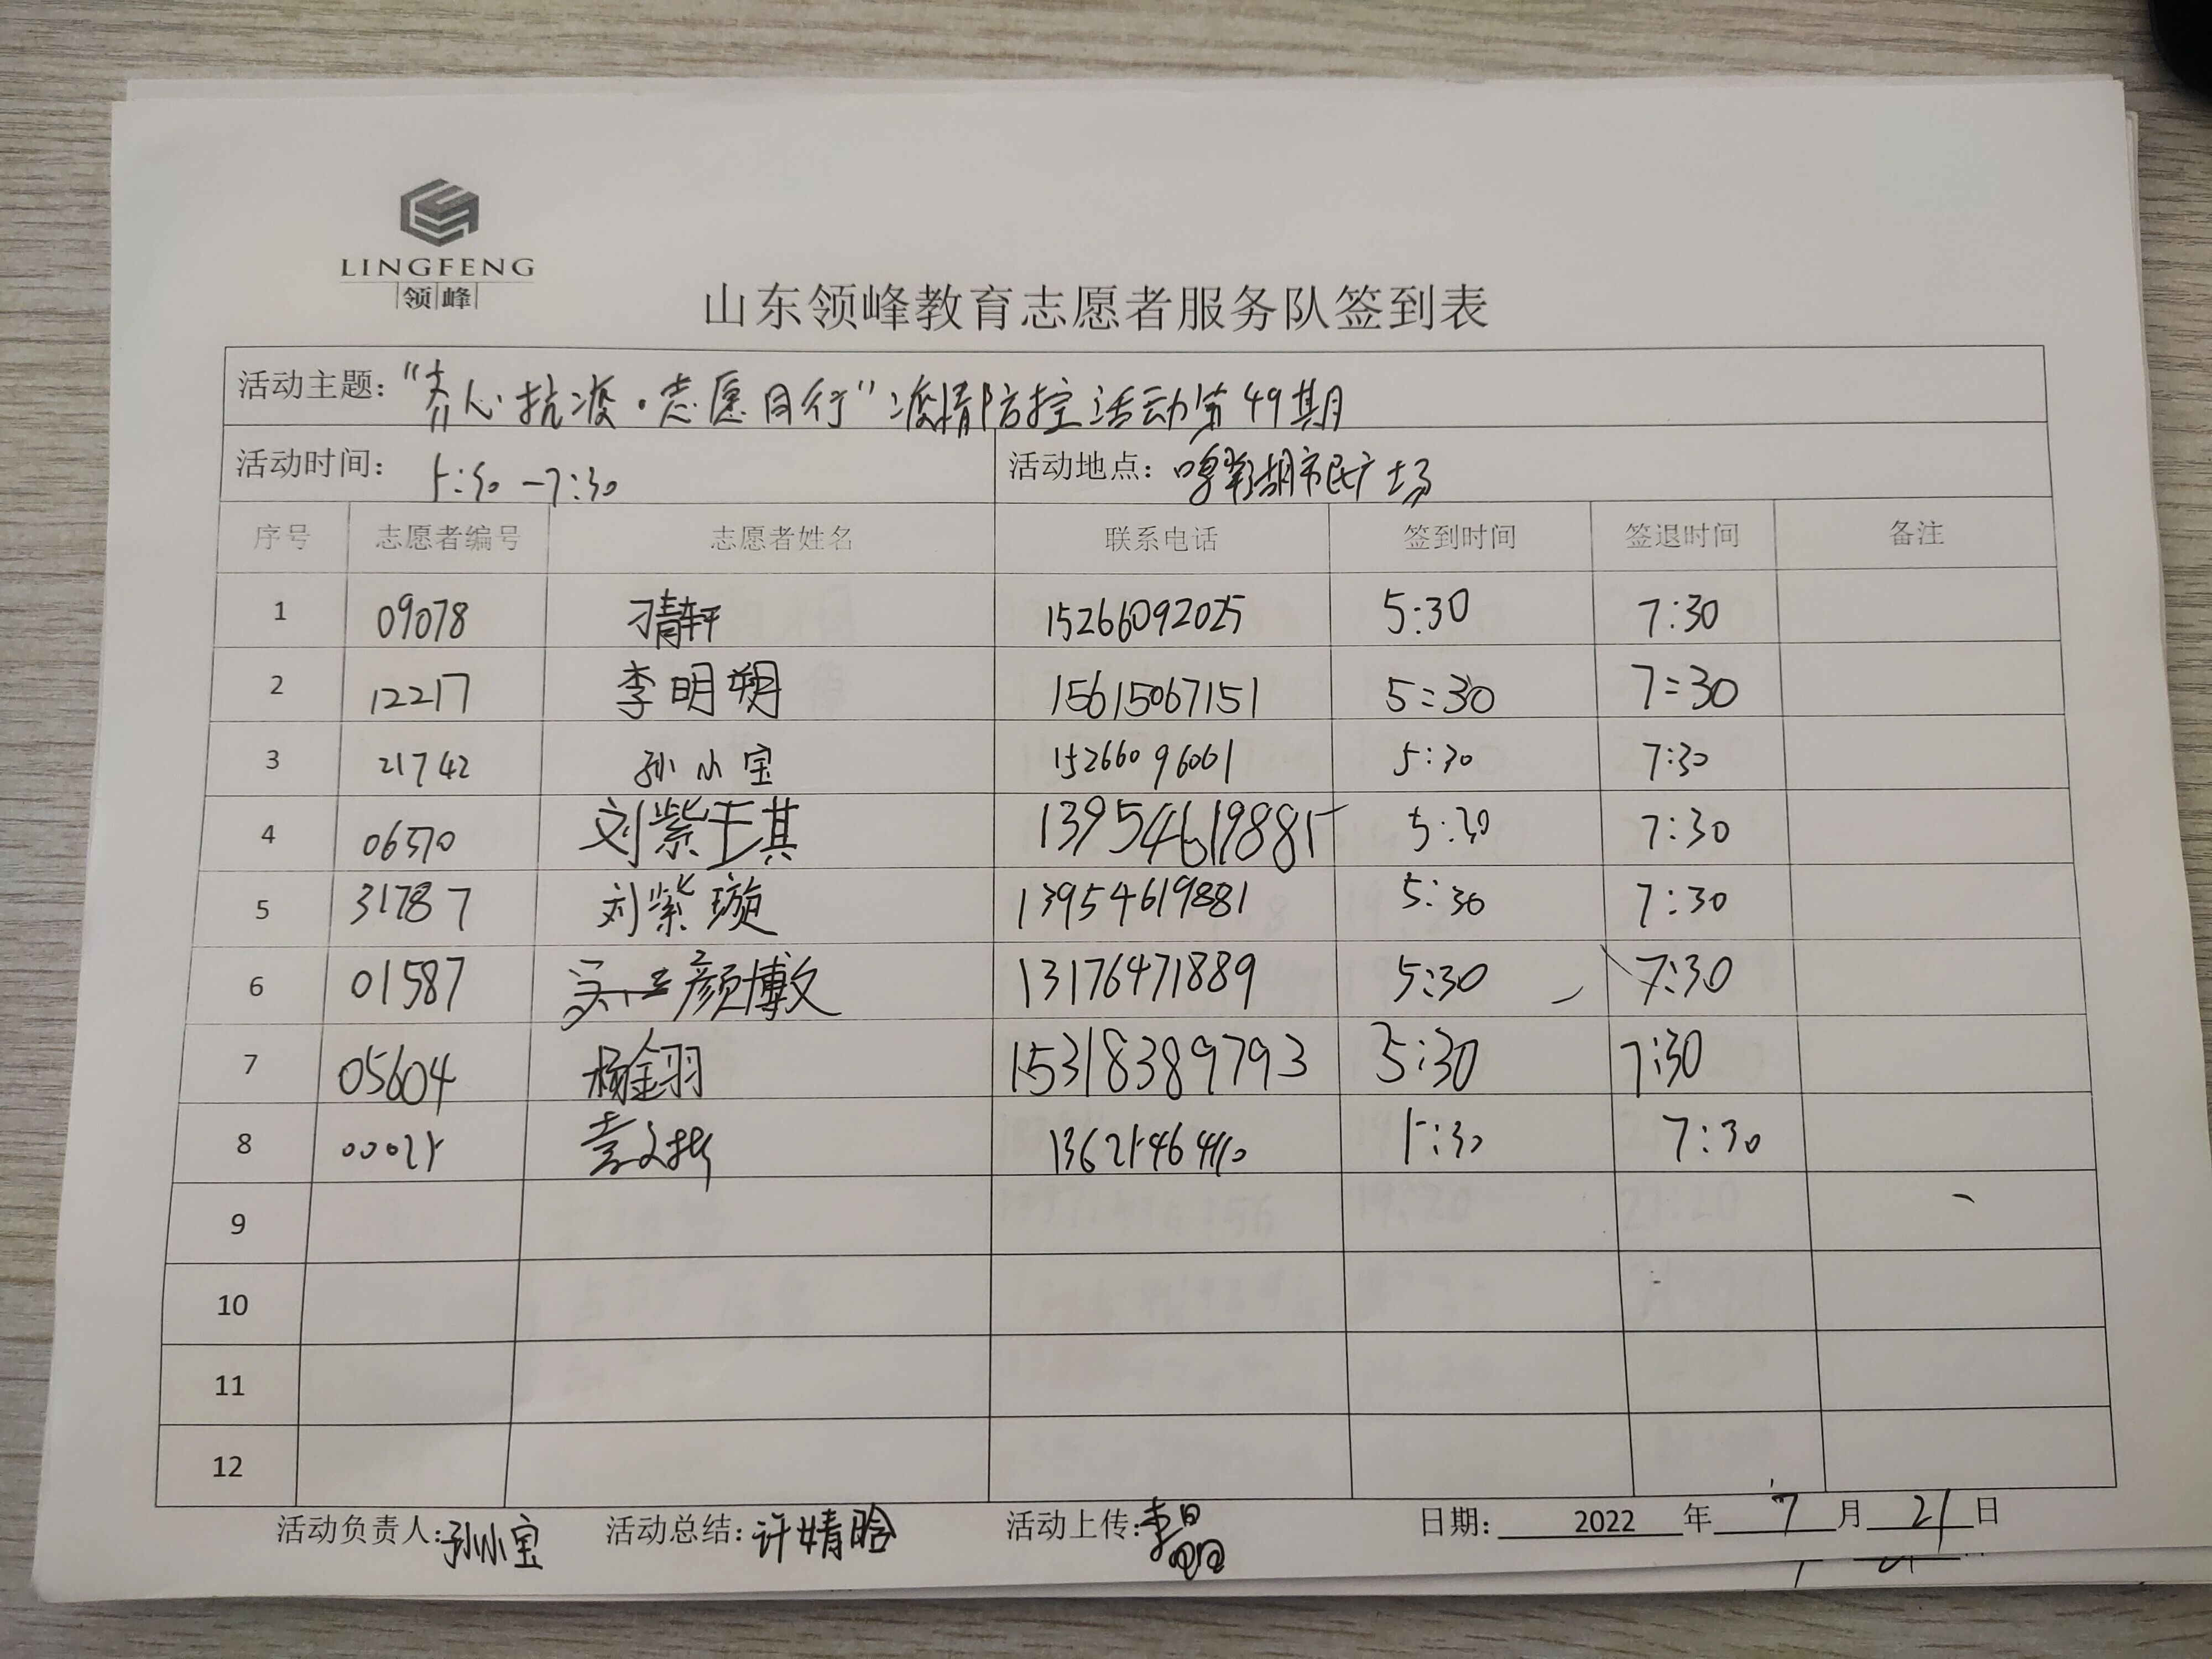 LINGFENG
领峰
山东领峰教育志愿者服务队签到表
活动主题：“齐心抗疫·志愿同行”疫情防控活动第49期
活动时间： 5:30-7:30 活动地点： 市民广场
序号 志愿者编号 志愿者姓名 联系电话 签到时间 签退时间 备注
1 09078 刁青轩 15266092025 5:30 7:30
2 12217 李明朔 15615067151 5:30 7:30
3 21742 孙小宝 15266096061 5:30 7:30
4 06570 刘紫琪 13954619881 5:30 7:30
5 31787 刘紫璇 13954619881 5:30 7:30
6 01587 颜博文 13176471889 5:30 7:30
7 05604 杨金羽 15318389793 5:30 7:30
8 00025 5:30 7:30
9
10
11
12
活动负责人：孙小宝 活动总结：许婧晗 活动上传：李晶晶 日期： 2022 年 7 月 21 日